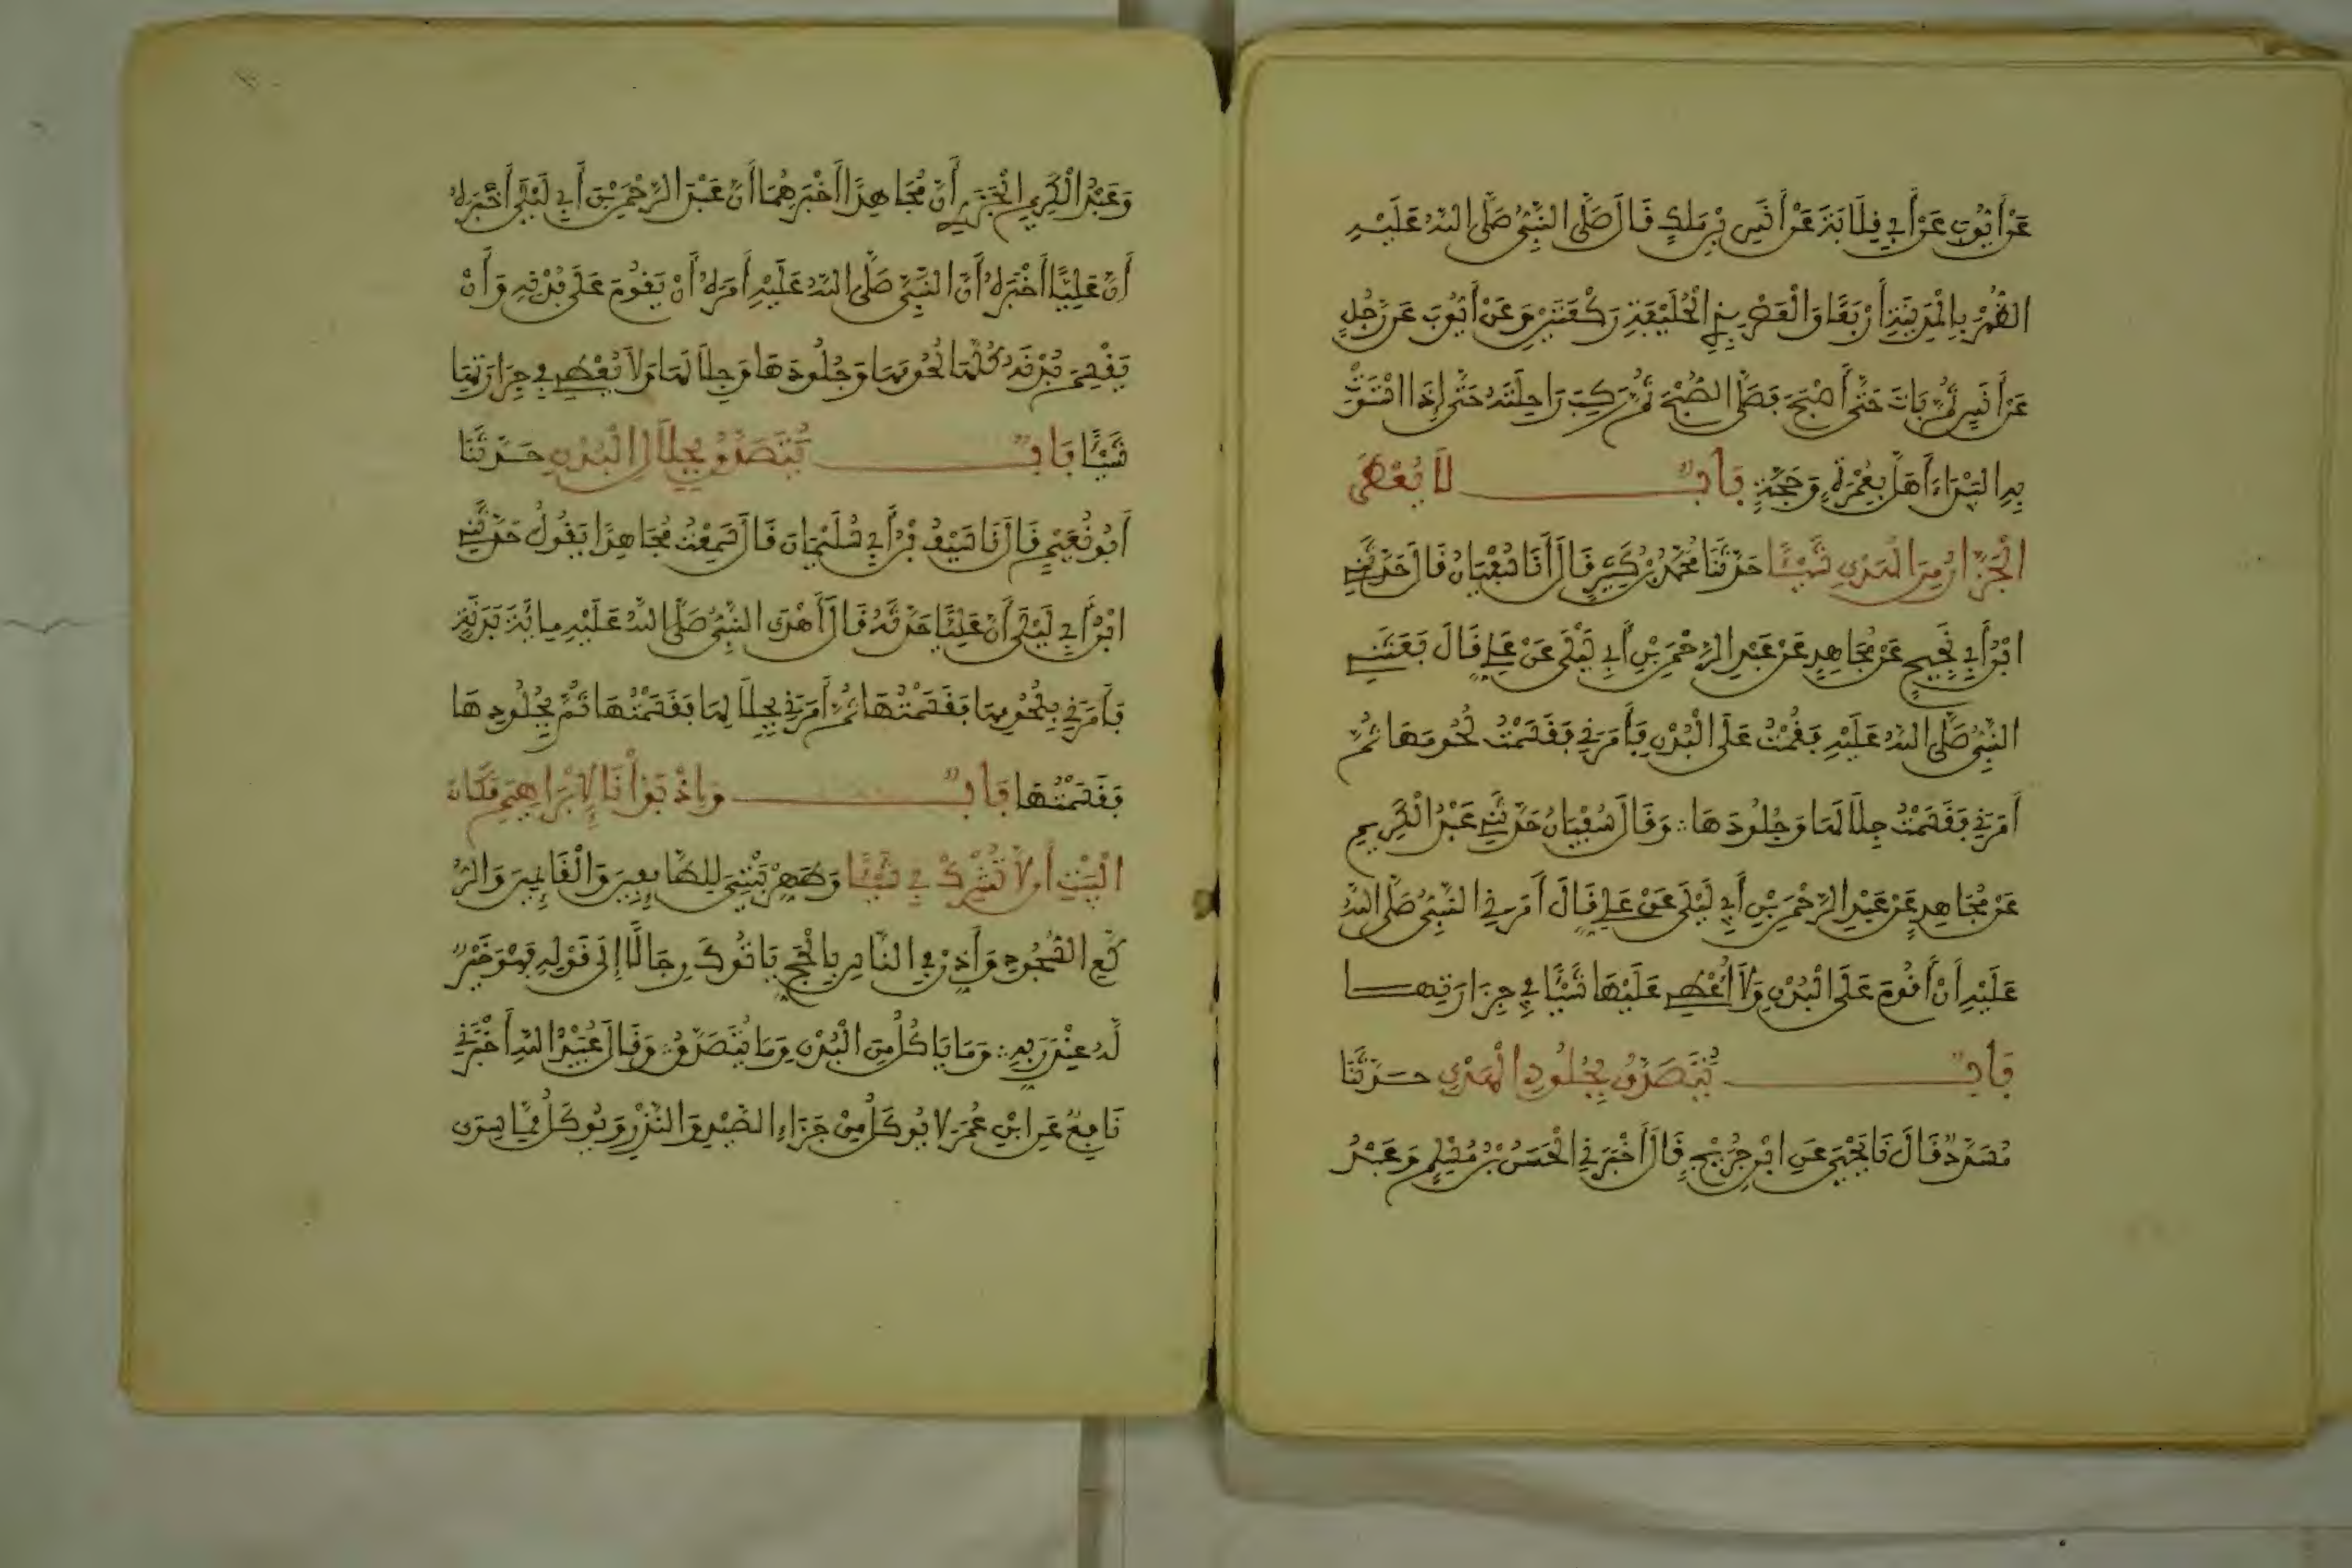 عَنْ أَيُّوبَ عَنْ أَبِي قِلَابَةَ عَنْ أَنَسِ بْنِ مَلِكٍ قَالَ صَلَّى النَّبِيُّ صَلَّى اللَّهُ عَلَيْهِ
الظُّهْرَ بِالْمَدِينَةِ أَرْبَعًا وَالْعَصْرَ بِذِي الْحُلَيْفَةِ رَكْعَتَيْنِ وَعَنْ أَيُّوبَ عَنْ رَجُلٍ
عَنْ أَنَسٍ ثُمَّ بَاتَ حَتَّى أَصْبَحَ فَصَلَّى الصُّبْحَ ثُمَّ رَكِبَ رَاحِلَتَهُ حَتَّى إِذَا اسْتَوَتْ
بِهِ الْبَيْدَاءَ أَهَلَّ بِعُمْرَةٍ وَحَجَّةٍ بَابٌ لَا يُعْطَى
الْجَزَّارُ مِنَ الْهَدْيِ شَيْئًا حَدَّثَنَا مُحَمَّدُ بْنُ كَثِيرٍ قَالَ أَنَا سُفْيَانُ قَالَ حَدَّثَنِي
ابْنُ أَبِي نَجِيحٍ عَنْ مُجَاهِدٍ عَنْ عَبْدِ الرَّحْمَنِ بْنِ أَبِي لَيْلَى عَنْ عَلِيٍّ قَالَ بَعَثَنِي
النَّبِيُّ صَلَّى اللَّهُ عَلَيْهِ فَقُمْتُ عَلَى الْبُدْنِ فَأَمَرَنِي فَقَسَمْتُ لُحُومَهَا ثُمَّ
أَمَرَنِي فَقَسَمْتُ جِلَالَهَا وَجُلُودَهَا ∴ وَقَالَ سُفْيَانُ حَدَّثَنِي عَبْدُ الْكَرِيمِ
عَنْ مُجَاهِدٍ عَنْ عَبْدِ الرَّحْمَنِ بْنِ أَبِي لَيْلَى عَنْ عَلِيٍّ قَالَ أَمَرَنِي النَّبِيُّ صَلَّى اللَّهُ
عَلَيْهِ أَنْ أَقُومَ عَلَى الْبُدْنِ وَلَا أُعْطِيَ عَلَيْهَا شَيْئًا فِي جِزَارَتِهَا
بَابٌ يُتَصَدَّقُ بِجُلُودِ الْهَدْيِ حَدَّثَنَا
مُسَدَّدٌ قَالَ نَا يَحْيَى عَنِ ابْنِ جُرَيْجٍ قَالَ أَخْبَرَنِي الْحَسَنُ بْنُ مُسْلِمٍ وَعَبْدُ
وَعَبْدُ الْكَرِيمِ الْجَزَرِيُّ أَنَّ مُجَاهِدًا أَخْبَرَهُمَا أَنَّ عَبْدَ الرَّحْمَنِ بْنَ أَبِي لَيْلَى أَخْبَرَهُ
أَنَّ عَلِيًّا أَخْبَرَهُ أَنَّ النَّبِيَّ صَلَّى اللَّهُ عَلَيْهِ أَمَرَهُ أَنْ يَقُومَ عَلَى بُدْنِهِ وَأَنْ
يَقْسِمَ بُدْنَهُ كُلَّهَا لُحُومَهَا وَجُلُودَهَا وَجِلَالَهَا وَلَا يُعْطِيَ فِي جِزَارَتِهَا
شَيْئًا بَابٌ يُتَصَدَّقُ بِجِلَالِ الْبُدْنِ حَدَّثَنَا
أَبُو نُعَيْمٍ قَالَ نَا سَيْفُ بْنُ أَبِي سُلَيْمَانَ قَالَ سَمِعْتُ مُجَاهِدًا يَقُولُ حَدَّثَنِي
ابْنُ أَبِي لَيْلَى أَنَّ عَلِيًّا حَدَّثَهُ قَالَ أَهْدَى النَّبِيُّ صَلَّى اللَّهُ عَلَيْهِ مِائَةَ بَدَنَةٍ
فَأَمَرَنِي بِلُحُومِهَا فَقَسَمْتُهَا ثُمَّ أَمَرَنِي بِجِلَالِهَا فَقَسَمْتُهَا ثُمَّ بِجُلُودِهَا
فَقَسَمْتُهَا بَابٌ وَإِذْ بَوَّأْنَا لِإِبْرَاهِيمَ مَكَانَ
الْبَيْتِ أَن لَا تُشْرِكْ بِي شَيْئًا وَطَهِّرْ بَيْتِيَ لِلطَّائِفِينَ وَالْقَائِمِينَ وَالرُّ
كَّعِ السُّجُودِ وَأَذِّنْ فِي النَّاسِ بِالْحَجِّ يَاتُوكَ رِجَالًا إِلَى قَوْلِهِ فَهُوَ خَيْرٌ
لَّهُ عِنْدَ رَبِّهِ ∴ وَمَا يَاكُلُ مِنَ الْبُدْنِ وَمَا يُتَصَدَّقُ ∴ وَقَالَ عُبَيْدُ اللَّهِ أَخْبَرَنِي
نَافِعٌ عَنِ ابْنِ عُمَرَ لَا يُوكَلُ مِنْ جَزَاءِ الصَّيْدِ وَالنَّذْرِ وَيُوكَلُ مِمَّا سِوَى